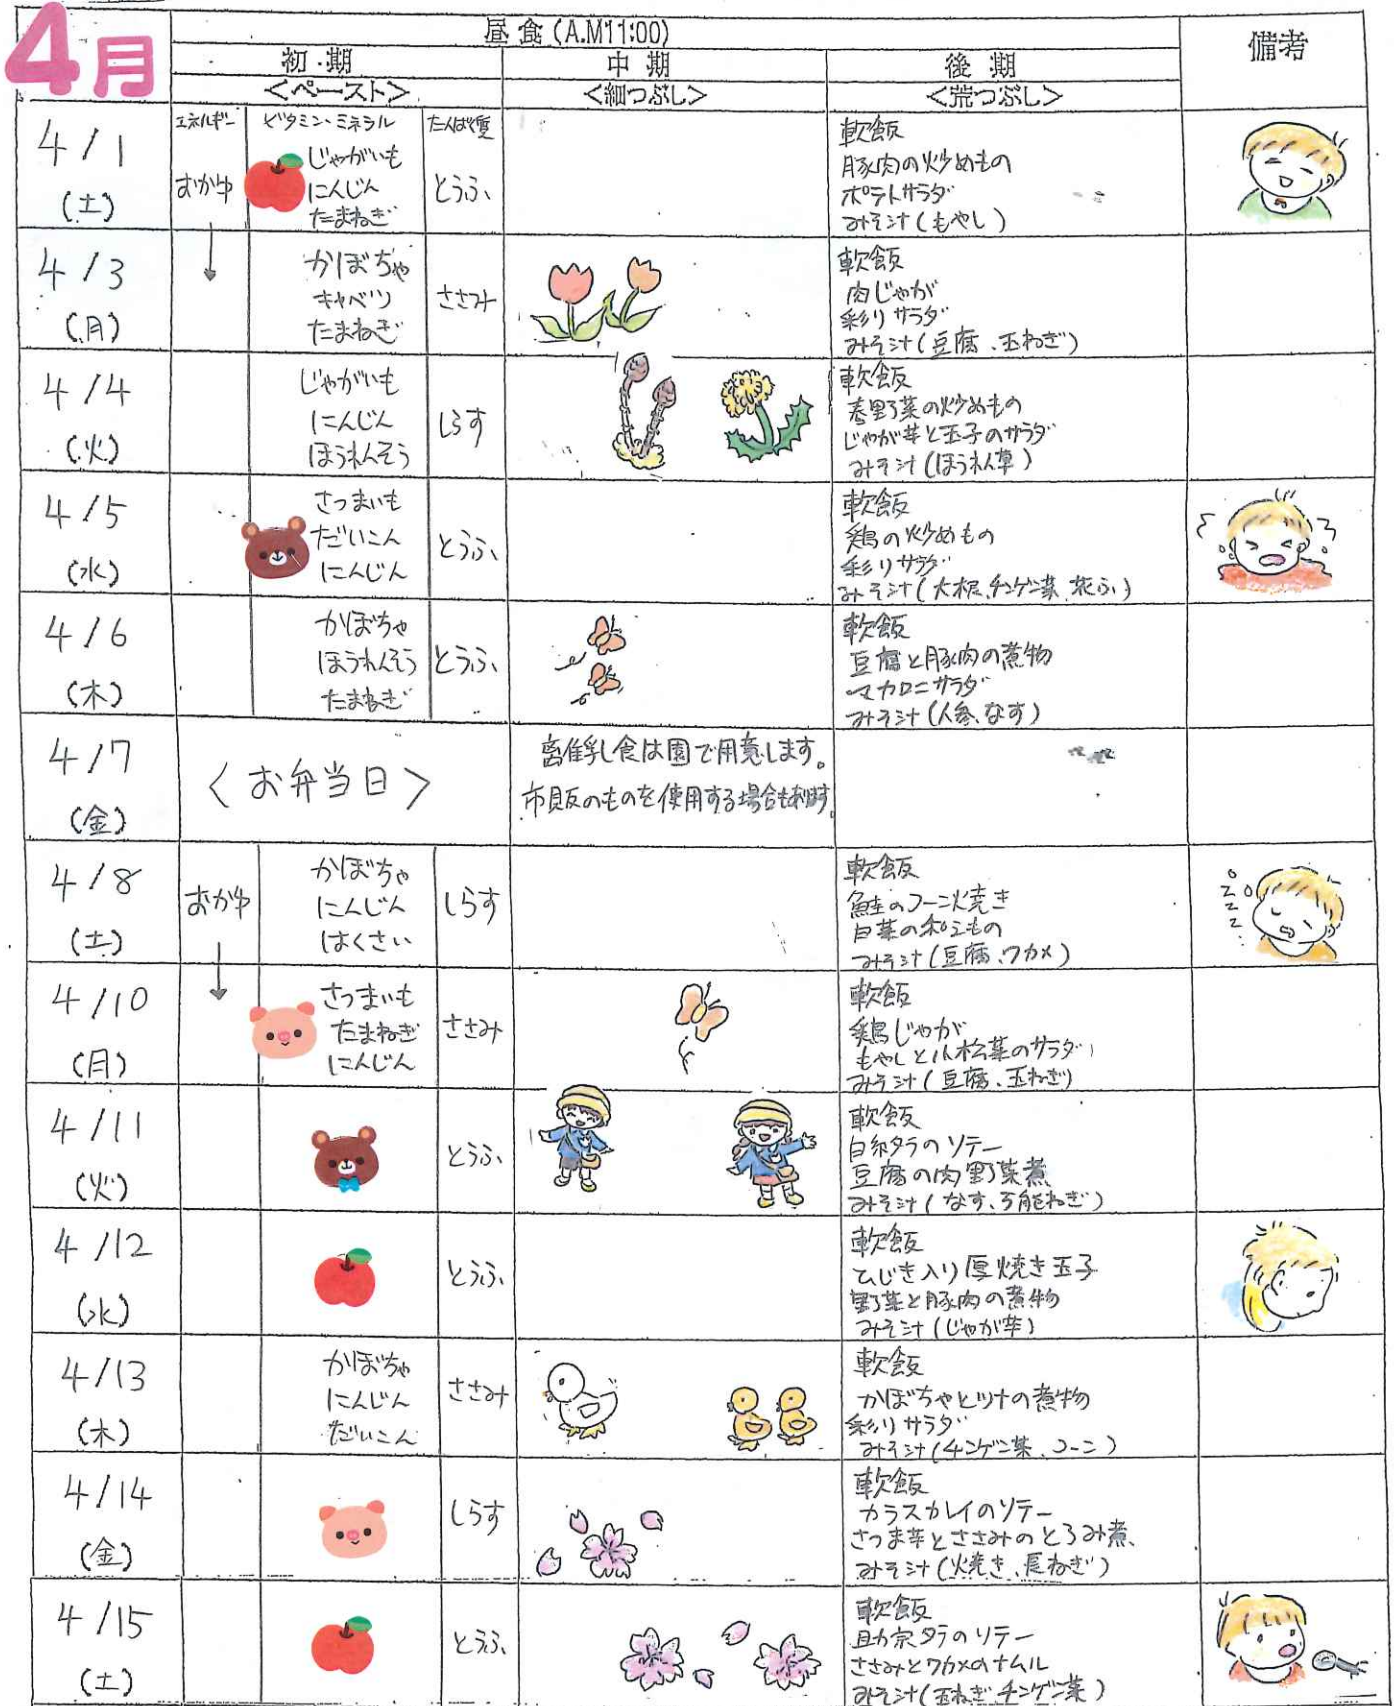 4月
昼食(A.M11:00)
備考
初期
中期
後期
<ペースト>
<細つぶし>
<荒つぶし>
4/1
(土)
エネルギー
おかゆ
ビタミン・ミネラル
じゃがいも
にんじん
たまねぎ
たんぱく質
とうふ
軟飯
豚肉の炒めもの
ポテトサラダ
みそ汁(もやし)
4/3
(月)
↓
かぼちゃ
キャベツ
たまねぎ
ささみ
軟飯
肉じゃが
彩りサラダ
みそ汁(豆腐、玉ねぎ)
4/4
(火)
じゃがいも
にんじん
ほうれんそう
しらす
軟飯
春野菜の炒めもの
じゃが芋と玉子のサラダ
みそ汁(ほうれん草)
4/5
(水)
さつまいも
だいこん
にんじん
とうふ
軟飯
鶏の炒めもの
彩りサラダ
みそ汁(大根、チンゲン菜、花ふ)
4/6
(木)
かぼちゃ
ほうれんそう
たまねぎ
とうふ
軟飯
豆腐と豚肉の煮物
マカロニサラダ
みそ汁(人参、なす)
4/7
(金)
<お弁当日>
離乳食は園で用意します。
市販のものを使用する場合もあります
4/8
(土)
おかゆ
↓
かぼちゃ
にんじん
はくさい
しらす
軟飯
鮭のコーン焼き
白菜の和えもの
みそ汁(豆腐、ワカメ)
zzzz
4/10
(月)
さつまいも
たまねぎ
にんじん
ささみ
軟飯
鶏じゃが
もやしと小松菜のサラダ
みそ汁(豆腐、玉ねぎ)
4/11
(火)
とうふ
軟飯
白糸タラのソテー
豆腐の肉野菜煮
みそ汁(なす、万能ねぎ)
4/12
(水)
とうふ
軟飯
ひじき入り厚焼き玉子
野菜と豚肉の煮物
みそ汁(じゃが芋)
4/13
(木)
かぼちゃ
にんじん
だいこん
ささみ
軟飯
かぼちゃとツナの煮物
彩りサラダ
みそ汁(チンゲン菜、コーン)
4/14
(金)
しらす
軟飯
カラスカレイのソテー
さつま芋とささみのとろみ煮
みそ汁(焼き、長ねぎ)
4/15
(土)
とうふ
軟飯
助宗タラのソテー
ささみとワカメのナムル
みそ汁(玉ねぎ、チンゲン菜)